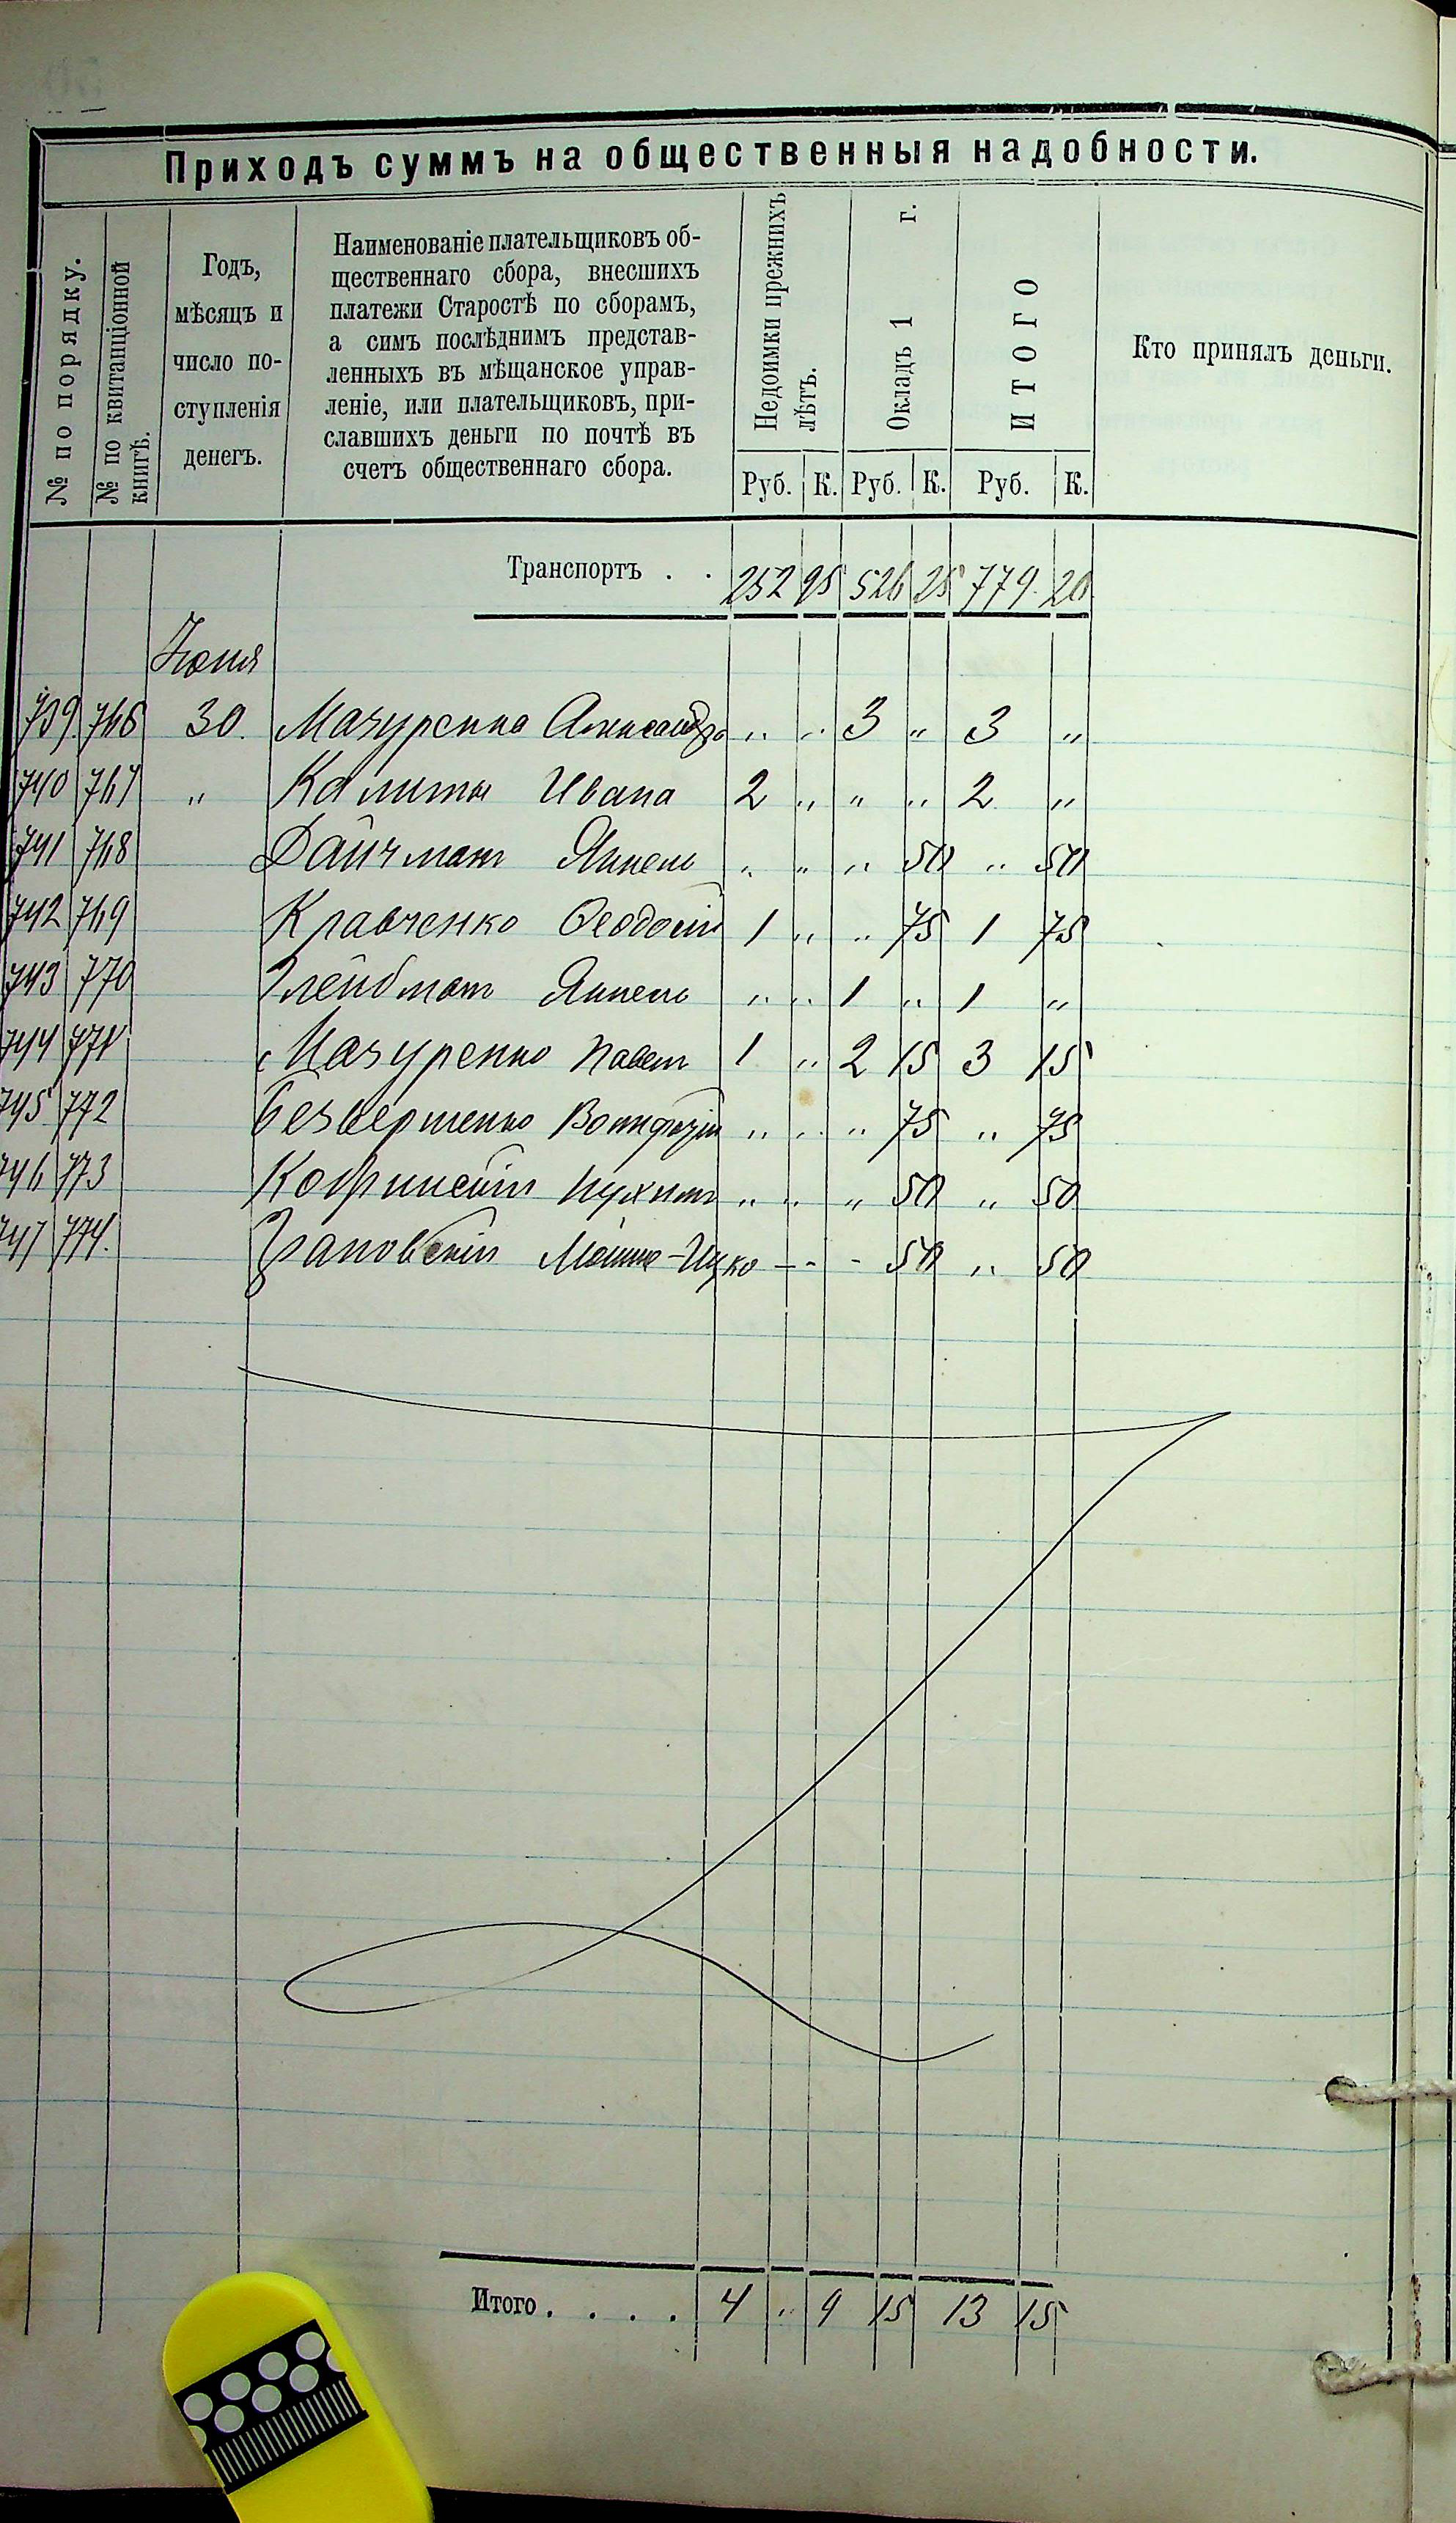 Приходъ суммъ на общественныя надобности.
№ по порядку.
№ по квитанціонной книгѣ.
Годъ,
мѣсяцъ и
число по-
ступленія
денегъ.
Наименованіе плательщиковъ об-
щественнаго сбора, внесшихъ
платежи Старостѣ по сборамъ,
а симъ послѣднимъ представ-
ленныхъ въ мѣщанское управ-
леніе, или плательщиковъ, при-
славшихъ деньги по почтѣ въ
счетъ общественнаго сбора.
Недоимки прежнихъ
лѣтъ.
Окладъ 1 г.
ИТОГО
Кто принялъ деньги.
Руб. К. Руб. К. Руб. К.
Транспортъ . . 252 95 526 25 779 20
Іюня
739 766 30. Мазуренко Александръ „ „ 3 „ 3 „
740 767 „ Калита Ивана 2 „ „ „ 2 „
741 768 Дайчманъ Янкель „ „ „ 50 „ 50
742 769 Кравченко Ѳеодосій 1 „ „ 75 1 75
743 770 Глейбманъ Янкель „ „ 1 „ 1 „
744 771 Мазуренко Павелъ 1 „ 2 15 3 15
745 772 Безвершенко „ „ „ 75 „ 75
746 773 „ „ „ 50 „ 50
747 774. Грановскій Мошко-Ицко - - - 50 „ 50
Итого . . . . 4 „ 9 15 13 15